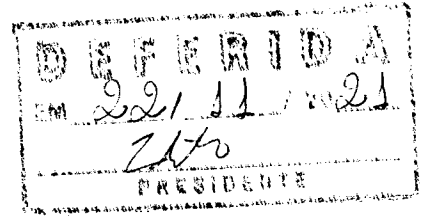 DEFERIDA
EM 22/11/2021
PRESIDENTE